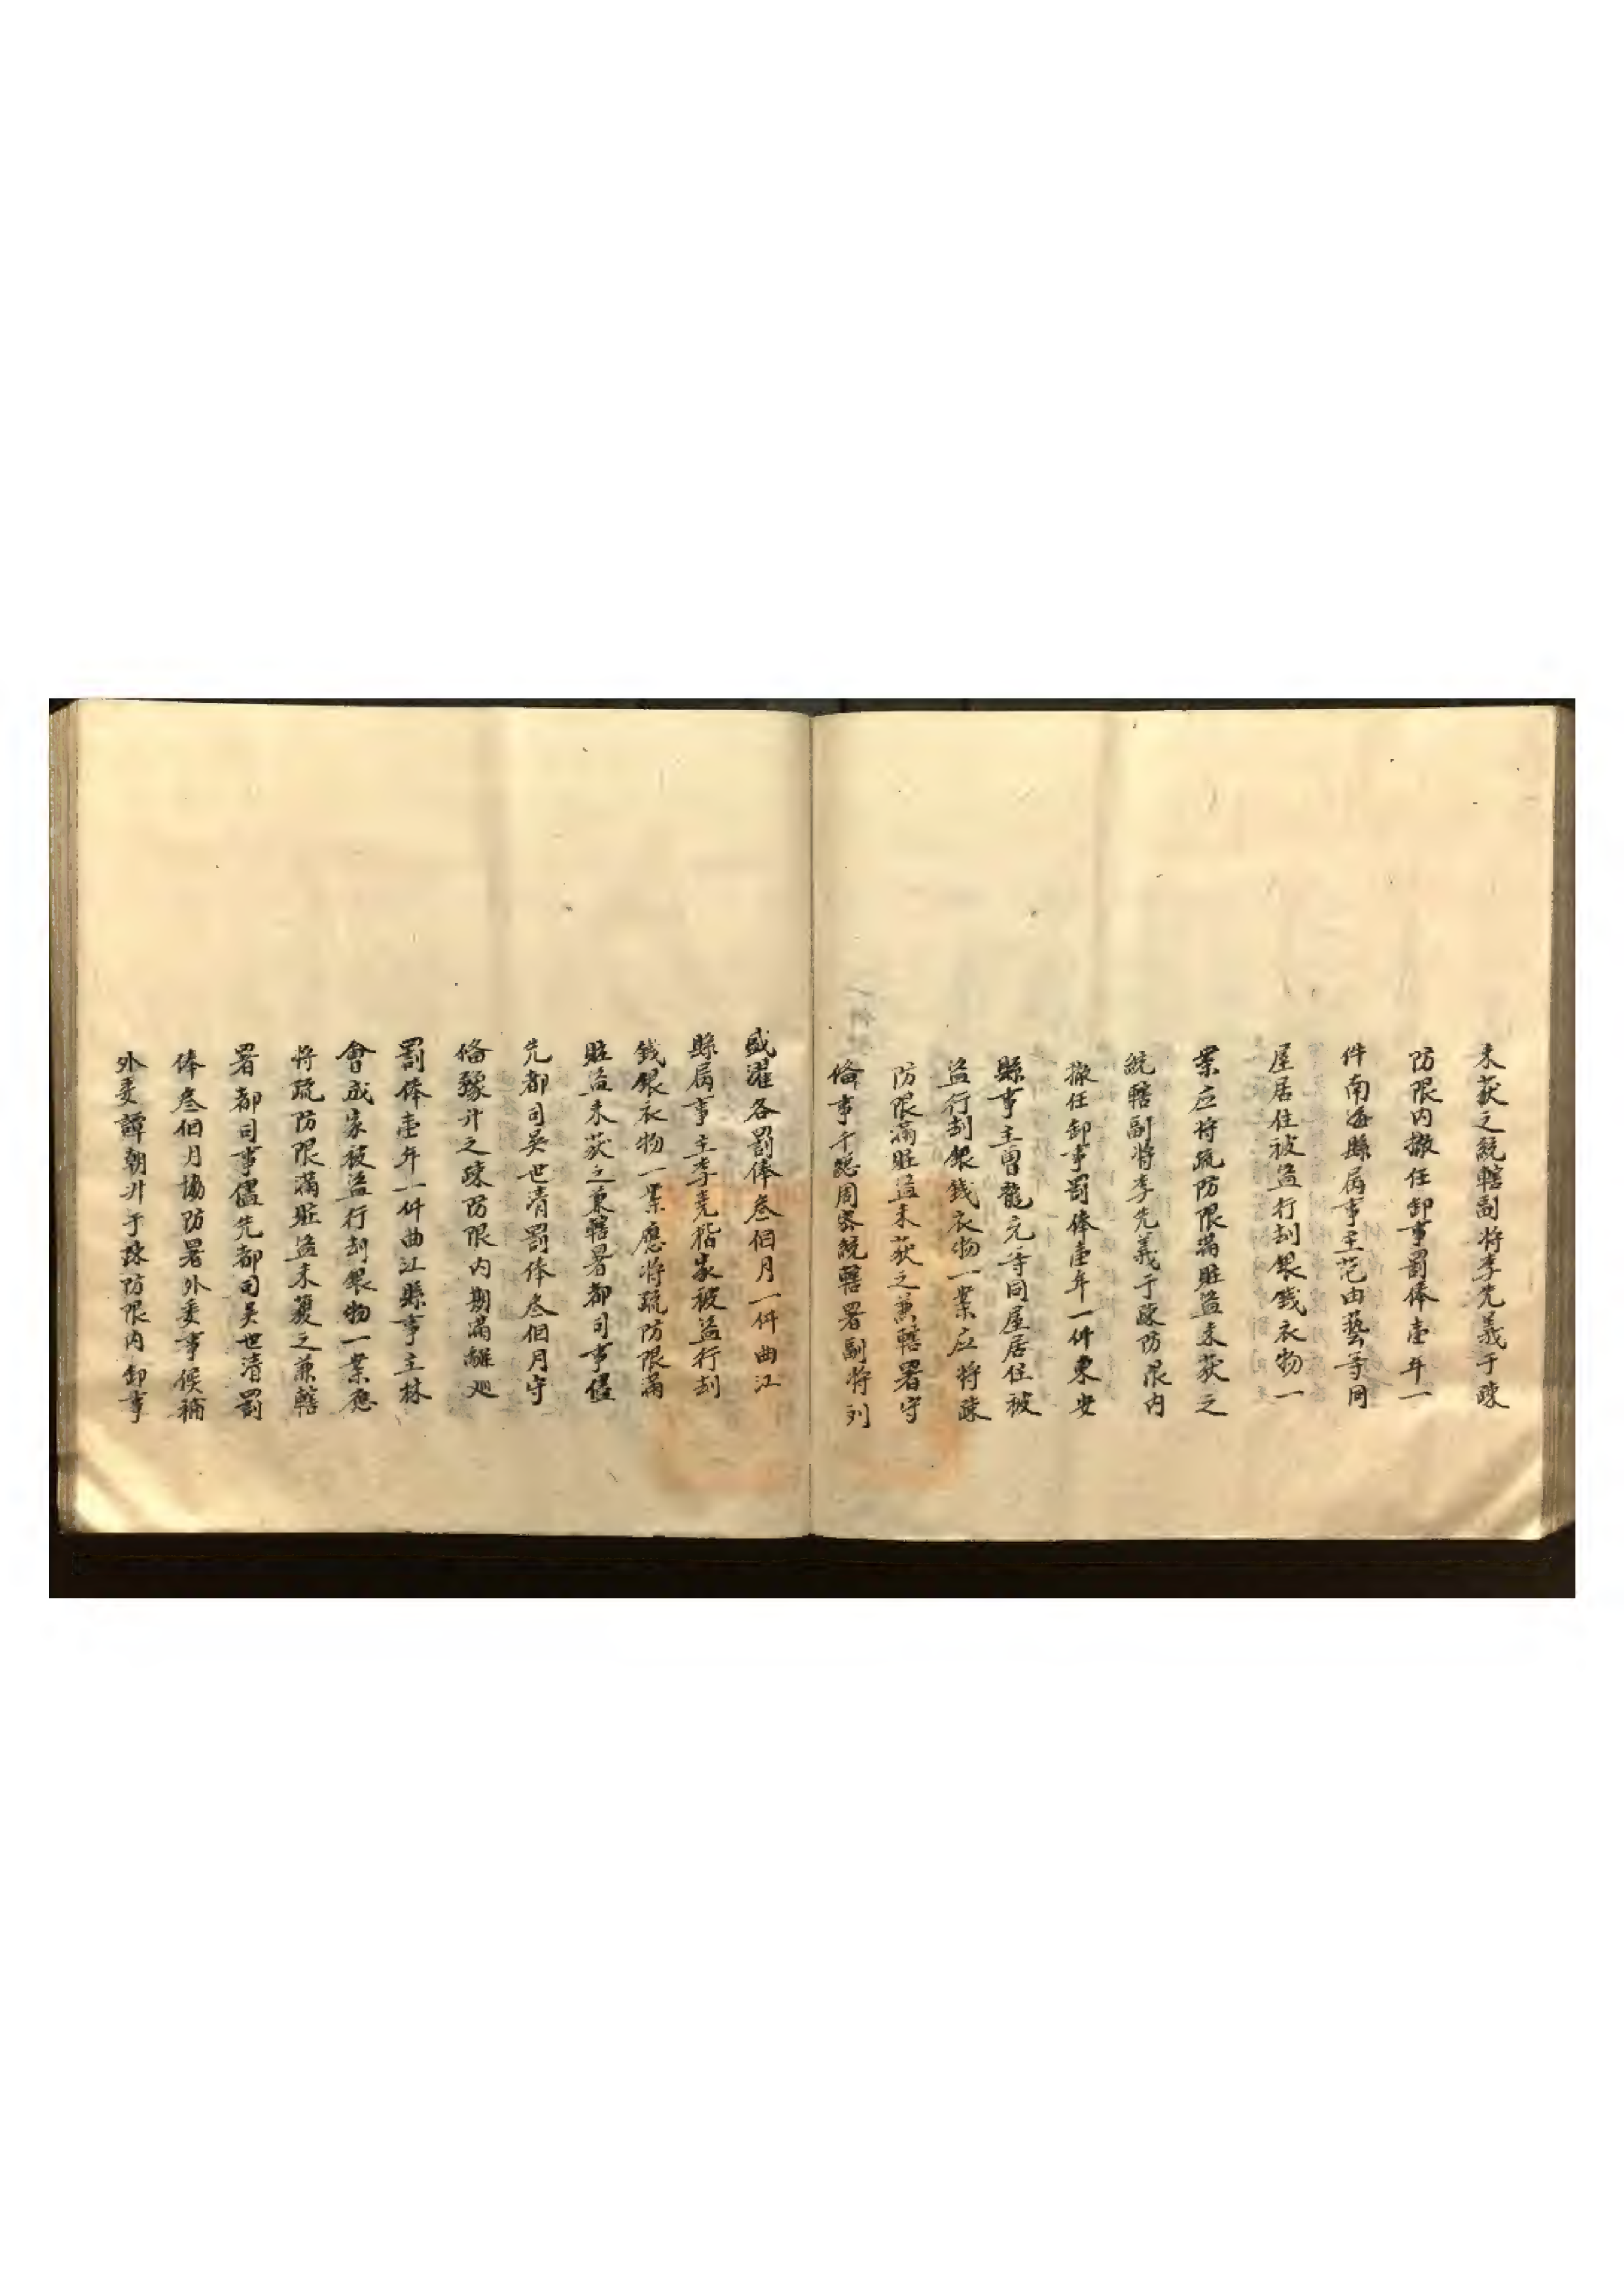 未获之統轄副将李先義于疎
防限内撤任卸事罰俸壹年一
件南海縣属事主范由藝等同
屋居住被盗行刦銀錢衣物一
案应将疏防限滿賍盗未获之
統轄副将李先義于疎防限内
撤任卸事罰俸壹年一件東安
縣事主曾龍元等同屋居住被
盗行刦銀錢衣物一案应将疎
防限滿賍盗未获之兼轄署守
俻事千总周 統轄署副将列
盛濯各罰俸叁個月一件曲江
縣属事主李堯楷家被盗行刦
錢銀衣物一案應将疏防限滿
賍盗未获之兼轄署都司事儘
先都司吴世清罰俸叁個月守
俻 升之疎防限内期滿離廵
罰俸壹年一件曲江縣事主林
會成家被盗行刦銀物一案應
将疏防限滿賍盗未獲之兼轄
署都司事儘先都司吴世清罰
俸叁個月協防署外委事候補
外委譚朝升于疎防限内卸事